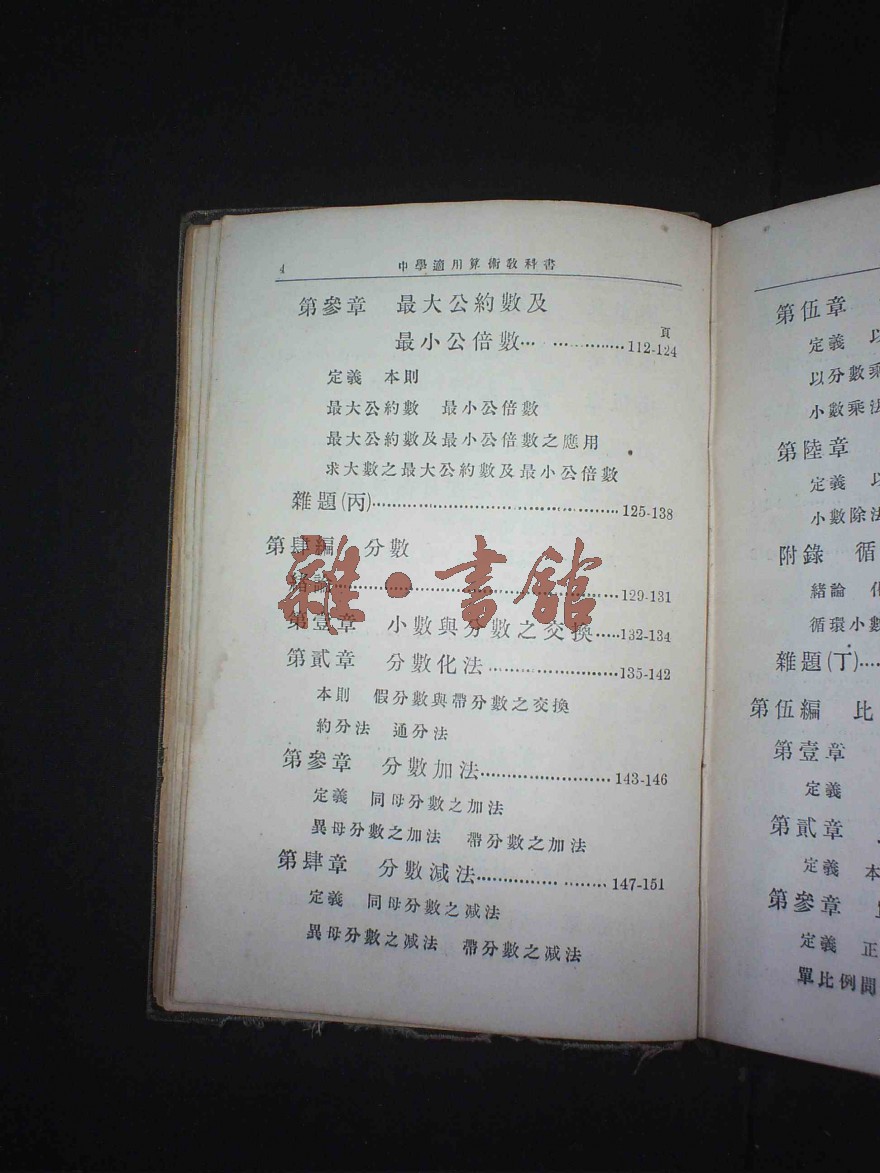 4 中學適用算術敎科書
第參章 最大公約數及
頁
最小公倍數… …………112-124
定義 本則
最大公約數 最小公倍數
最大公約數及最小公倍數之應用
求大數之最大公約數及最小公倍數
雜題(丙)……………………………………125-138
第肆編 分數
緒論……………………………………………129-131
第壹章 小數與分數之交換……132-134
第貳章 分數化法……………………135-142
本則 假分數與帶分數之交換
約分法 通分法
第參章 分數加法……………………143-146
定義 同母分數之加法
異母分數之加法 帶分數之加法
第肆章 分數減法……………… ………147-151
定義 同母分數之減法
異母分數之減法 帶分數之減法
雜·書館
第伍章
定義 以
以分數乘
小數乘法
第陸章
定義 以
小數除法
附錄 循
緒論 化
循環小數
雜題(丁)……
第伍編 比
第壹章
定義
第貳章
定義 本
第參章
定義 正
單比例問